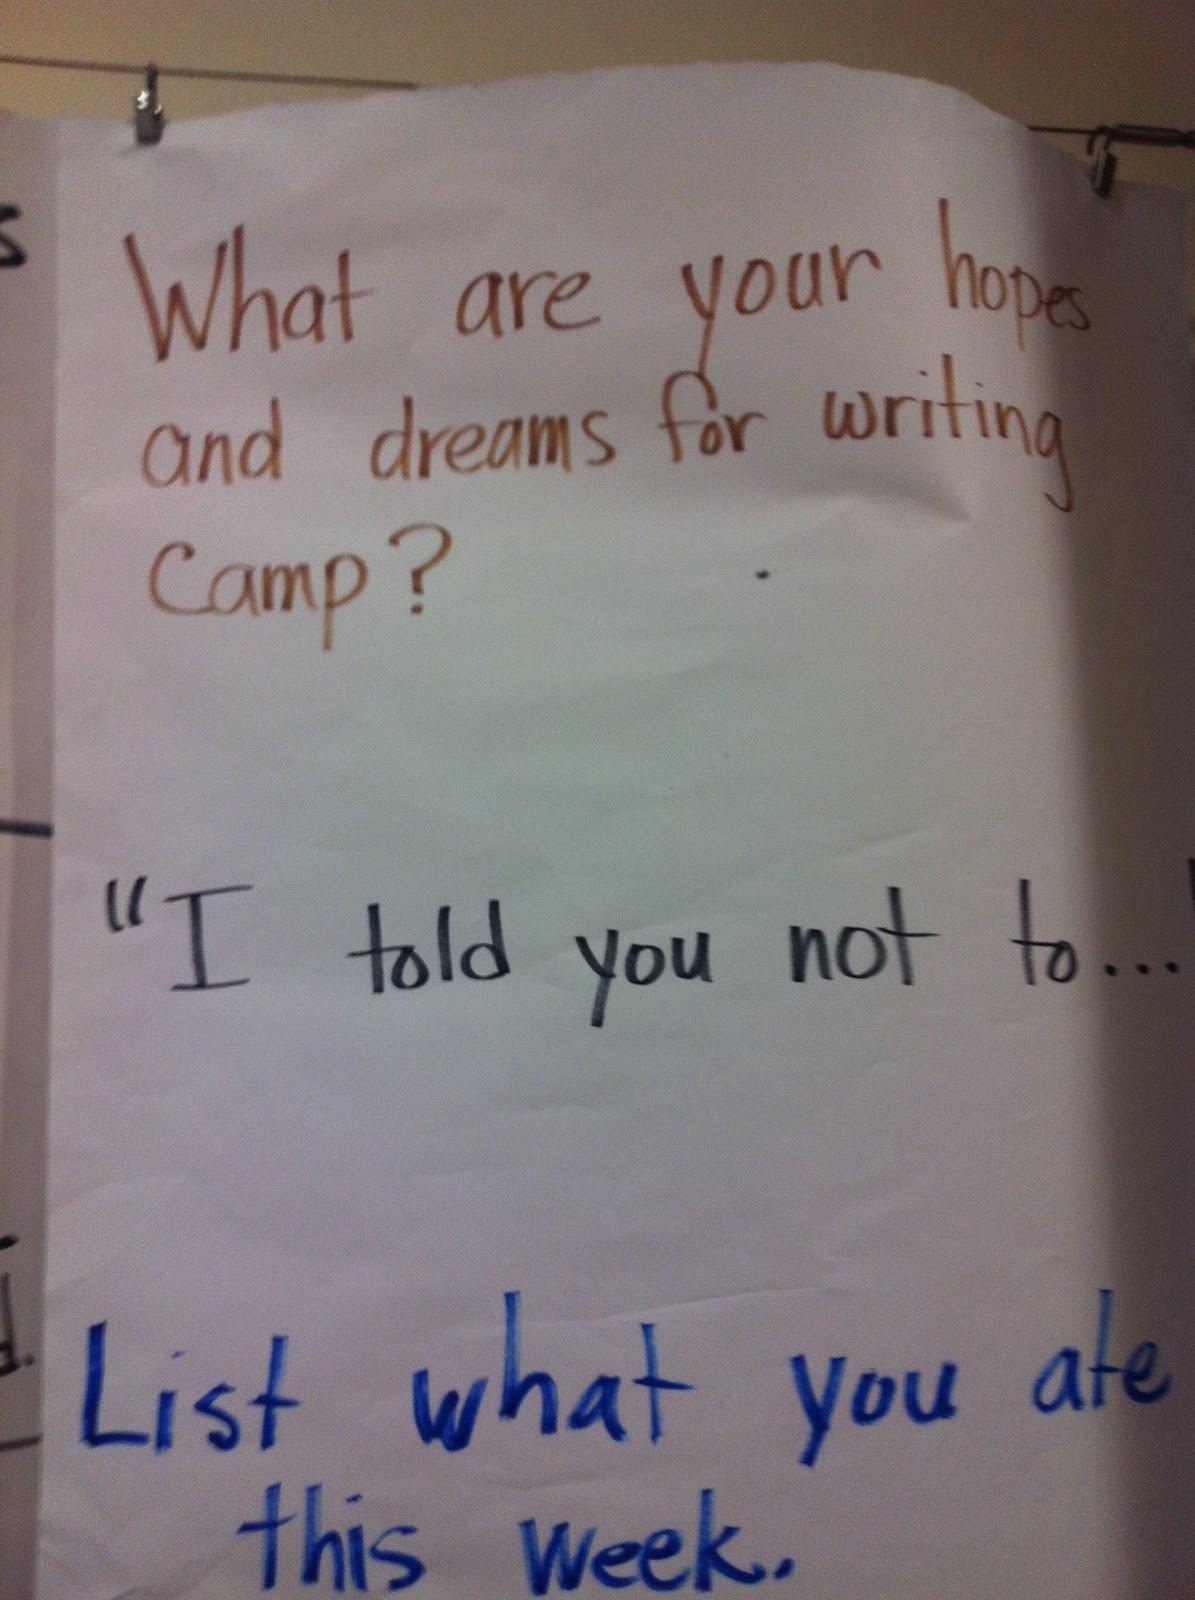 What are your hopes
and dreams for writing
Camp?
"I told you not to...
List what you ate
this week.